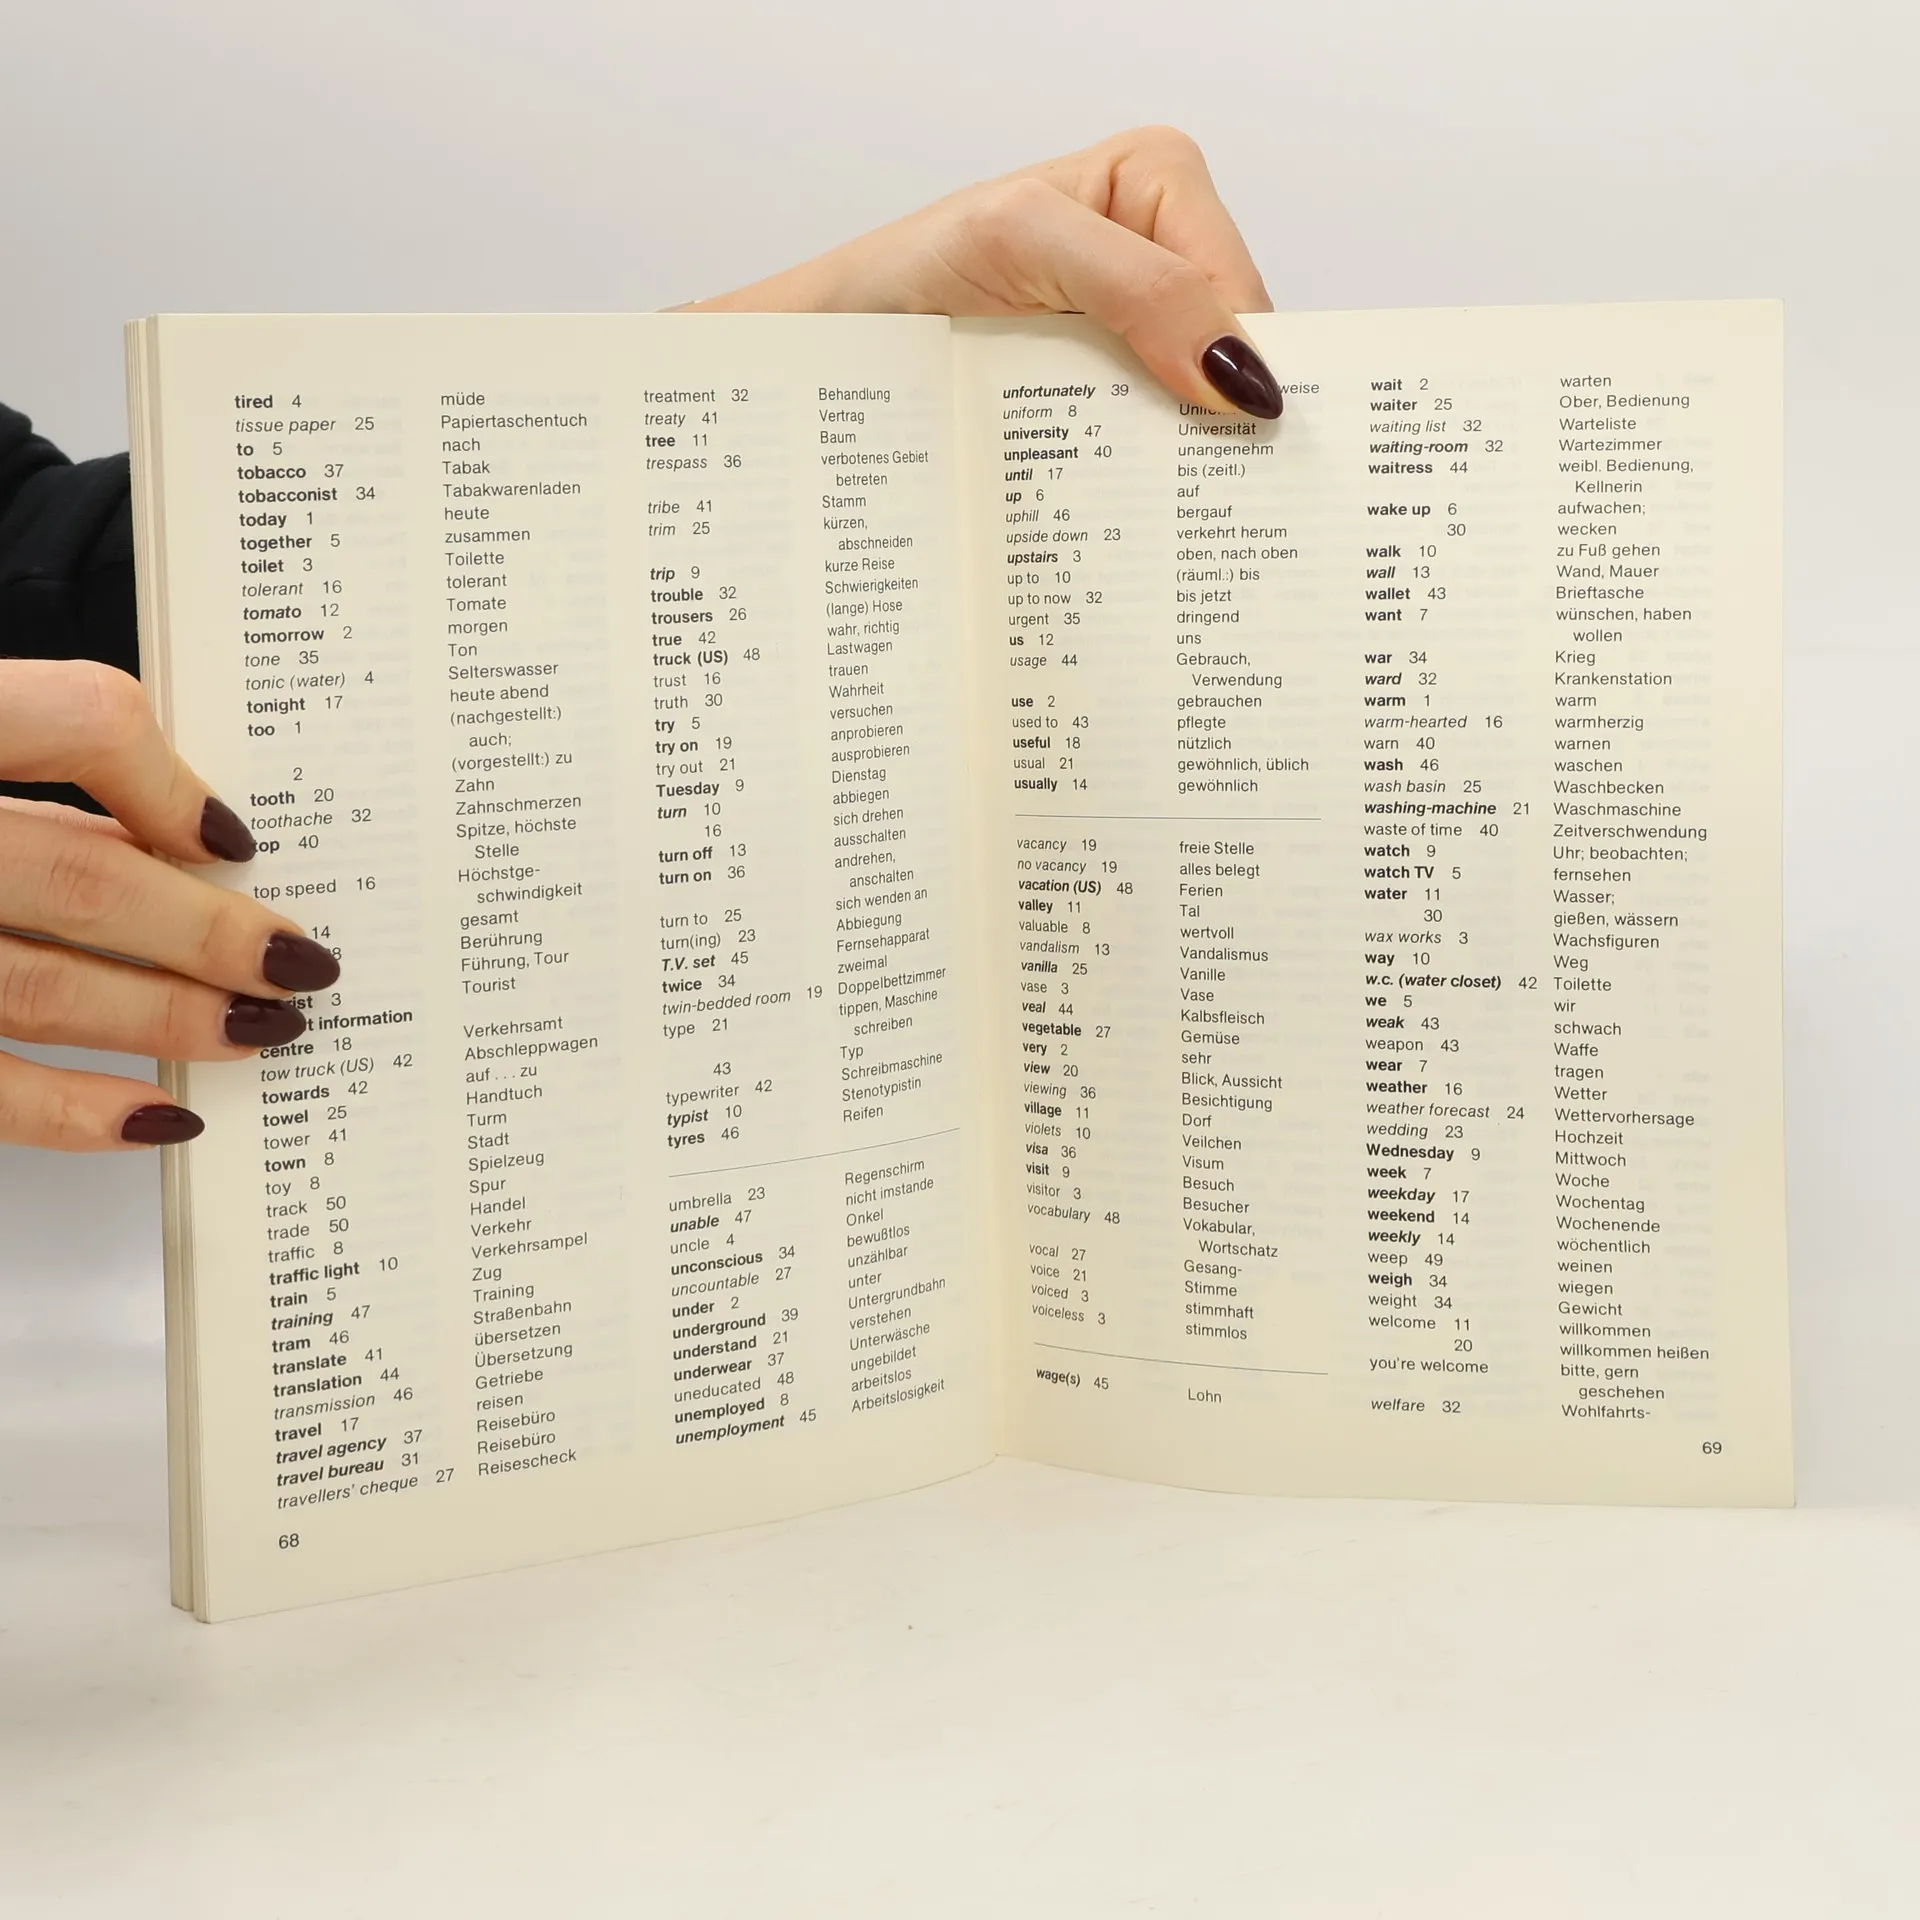 tired 4 müde
tissue paper 25 Papiertaschentuch
to 5 nach
tobacco 37 Tabak
tobacconist 34 Tabakwarenladen
today 1 heute
together 5 zusammen
toilet 3 Toilette
tolerant 16 tolerant
tomato 12 Tomate
tomorrow 2 morgen
tone 35 Ton
tonic (water) 4 Selterswasser
tonight 17 heute abend
too 1 (nachgestellt:)
auch;
2 (vorgestellt:) zu
tooth 20 Zahn
toothache 32 Zahnschmerzen
top 40 Spitze, höchste
Stelle
top speed 16 Höchstge-
schwindigkeit
14 gesamt
8 Berührung
Führung, Tour
ist 3 Tourist
t information
centre 18 Verkehrsamt
tow truck (US) 42 Abschleppwagen
towards 42 auf . . . zu
towel 25 Handtuch
tower 41 Turm
town 8 Stadt
toy 8 Spielzeug
track 50 Spur
trade 50 Handel
traffic 8 Verkehr
traffic light 10 Verkehrsampel
train 5 Zug
training 47 Training
tram 46 Straßenbahn
translate 41 übersetzen
translation 44 Übersetzung
transmission 46 Getriebe
travel 17 reisen
travel agency 37 Reisebüro
travel bureau 31 Reisebüro
travellers' cheque 27 Reisescheck
68
treatment 32 Behandlung
treaty 41 Vertrag
tree 11 Baum
trespass 36 verbotenes Gebiet
betreten
tribe 41 Stamm
trim 25 kürzen,
abschneiden
trip 9 kurze Reise
trouble 32 Schwierigkeiten
trousers 26 (lange) Hose
true 42 wahr, richtig
truck (US) 48 Lastwagen
trust 16 trauen
truth 30 Wahrheit
try 5 versuchen
try on 19 anprobieren
try out 21 ausprobieren
Tuesday 9 Dienstag
turn 10 abbiegen
16 sich drehen
turn off 13 ausschalten
turn on 36 andrehen,
anschalten
turn to 25 sich wenden an
turn(ing) 23 Abbiegung
T.V. set 45 Fernsehapparat
twice 34 zweimal
twin-bedded room 19 Doppelbettzimmer
type 21 tippen, Maschine
schreiben
43 Typ
typewriter 42 Schreibmaschine
typist 10 Stenotypistin
tyres 46 Reifen
umbrella 23 Regenschirm
unable 47 nicht imstande
uncle 4 Onkel
unconscious 34 bewußtlos
uncountable 27 unzählbar
under 2 unter
underground 39 Untergrundbahn
understand 21 verstehen
underwear 37 Unterwäsche
uneducated 48 ungebildet
unemployed 8 arbeitslos
unemployment 45 Arbeitslosigkeit
unfortunately 39 weise
uniform 8
university 47 Universität
unpleasant 40 unangenehm
until 17 bis (zeitl.)
up 6 auf
uphill 46 bergauf
upside down 23 verkehrt herum
upstairs 3 oben, nach oben
up to 10 (räuml.:) bis
up to now 32 bis jetzt
urgent 35 dringend
us 12 uns
usage 44 Gebrauch,
Verwendung
use 2 gebrauchen
used to 43 pflegte
useful 18 nützlich
usual 21 gewöhnlich, üblich
usually 14 gewöhnlich
vacancy 19 freie Stelle
no vacancy 19 alles belegt
vacation (US) 48 Ferien
valley 11 Tal
valuable 8 wertvoll
vandalism 13 Vandalismus
vanilla 25 Vanille
vase 3 Vase
veal 44 Kalbsfleisch
vegetable 27 Gemüse
very 2 sehr
view 20 Blick, Aussicht
viewing 36 Besichtigung
village 11 Dorf
violets 10 Veilchen
visa 36 Visum
visit 9 Besuch
visitor 3 Besucher
vocabulary 48 Vokabular,
Wortschatz
vocal 27 Gesang-
voice 21 Stimme
voiced 3 stimmhaft
voiceless 3 stimmlos
wage(s) 45 Lohn
wait 2 warten
waiter 25 Ober, Bedienung
waiting list 32 Warteliste
waiting-room 32 Wartezimmer
waitress 44 weibl. Bedienung,
Kellnerin
wake up 6 aufwachen;
30 wecken
walk 10 zu Fuß gehen
wall 13 Wand, Mauer
wallet 43 Brieftasche
want 7 wünschen, haben
wollen
war 34 Krieg
ward 32 Krankenstation
warm 1 warm
warm-hearted 16 warmherzig
warn 40 warnen
wash 46 waschen
wash basin 25 Waschbecken
washing-machine 21 Waschmaschine
waste of time 40 Zeitverschwendung
watch 9 Uhr; beobachten;
watch TV 5 fernsehen
water 11 Wasser;
30 gießen, wässern
wax works 3 Wachsfiguren
way 10 Weg
w.c. (water closet) 42 Toilette
we 5 wir
weak 43 schwach
weapon 43 Waffe
wear 7 tragen
weather 16 Wetter
weather forecast 24 Wettervorhersage
wedding 23 Hochzeit
Wednesday 9 Mittwoch
week 7 Woche
weekday 17 Wochentag
weekend 14 Wochenende
weekly 14 wöchentlich
weep 49 weinen
weigh 34 wiegen
weight 34 Gewicht
welcome 11 willkommen
20 willkommen heißen
you're welcome bitte, gern
geschehen
welfare 32 Wohlfahrts-
69